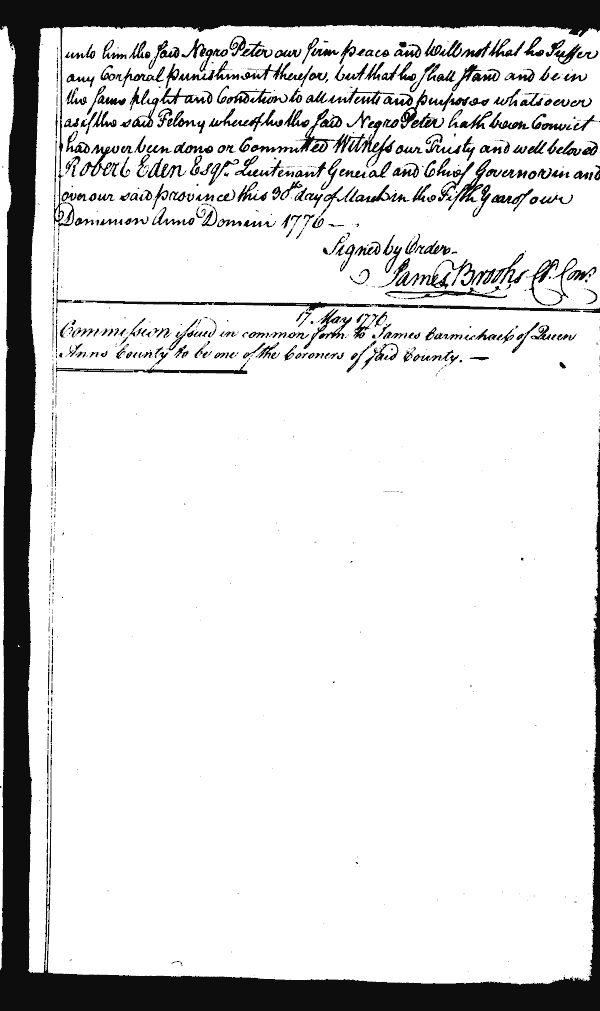 unto him the said Negro Peter our firm peace and Will not that he Suffer
any Corporal punishment therefor, but that he shall stand and be in
the same plight and Condition to all intents and purposes whatsoever
as if the said Felony whereof he the said Negro Peter hath been Convict
had never been done or Committed Witness our Trusty and well beloved
Robert Eden Esqr. Lieutenant General and Chief Governor in and
over our said province this 30th day of March in the Fifth Year of our
Dominion Anno Domini 1776 —
Signed by Order
James Brooks Cl. Con.
17 May 1776
Commission issued in common form to James Carmichael of Queen
Anns County to be one of the Coroners of said County. —